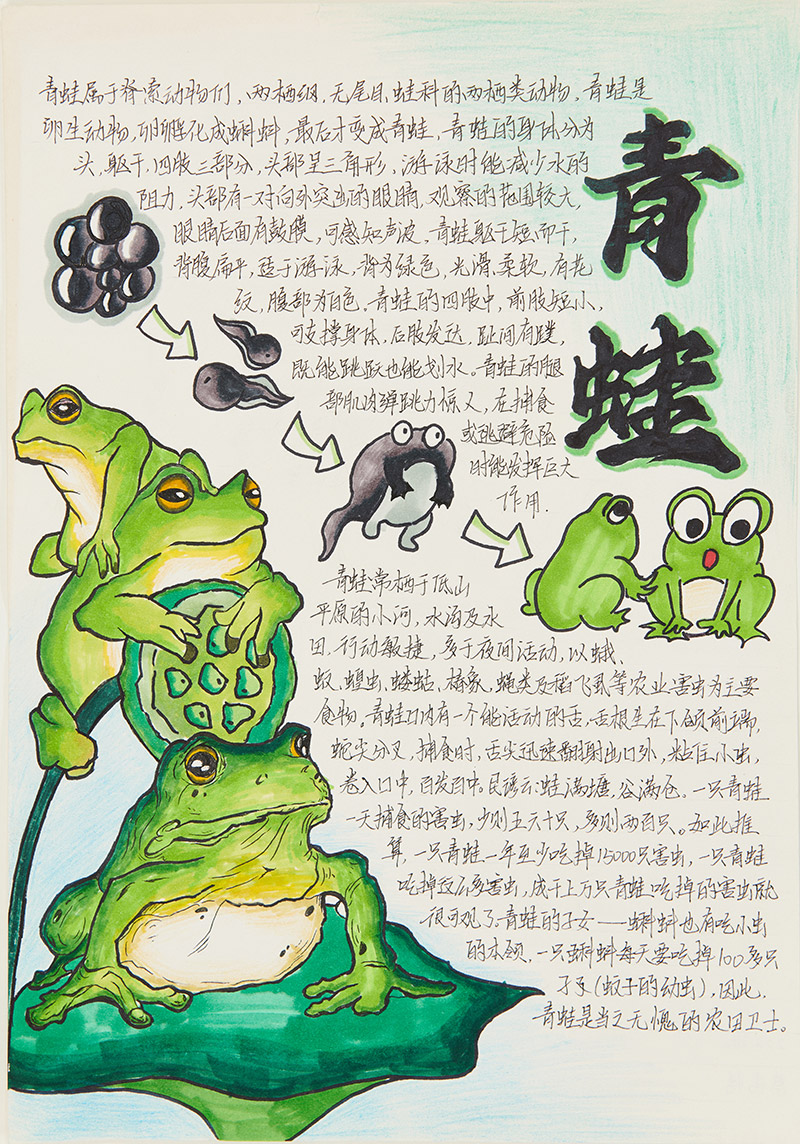 青蛙
青蛙属于脊索动物门、两栖纲、无尾目、蛙科的两栖类动物，青蛙是
卵生动物，卵孵化成蝌蚪，最后才变成青蛙，青蛙的身体分为
头、躯干、四肢三部分，头部呈三角形，游泳时能减少水的
阻力，头部有一对向外突出的眼睛，观察的范围较大，
眼睛后面有鼓膜，可感知声波，青蛙躯干短而干，
背腹扁平，适于游泳，背为绿色，光滑、柔软，有花
纹，腹部为白色。青蛙的四肢中，前肢短小，
可支撑身体，后肢发达，趾间有蹼，
既能跳跃也能划水。青蛙的腿
部肌肉弹跳力惊人，在捕食
或逃避危险
时能发挥巨大
作用。
青蛙常栖于低山
平原的小河，水沟及水
田，行动敏捷，多于夜间活动，以蛾、
蚊、蝗虫、蝼蛄、椿象、蝇类及稻飞虱等农业害虫为主要
食物。青蛙口内有一个能活动的舌，舌根生在下颌前端，
蛇尖分叉，捕食时，舌尖迅速翻射出口外，粘住小虫，
卷入口中，百发百中。民谣云：蛙满塘，谷满仓。一只青蛙
一天捕食的害虫，少则五六十只，多则两百只。如此推
算，一只青蛙一年至少吃掉15000只害虫，一只青蛙
吃掉这么多害虫，成千上万只青蛙吃掉的害虫就
很可观了。青蛙的子女——蝌蚪也有吃小虫
的本领，一只蝌蚪每天要吃掉100多只
孑孓（蚊子的幼虫），因此，
青蛙是当之无愧的农田卫士。